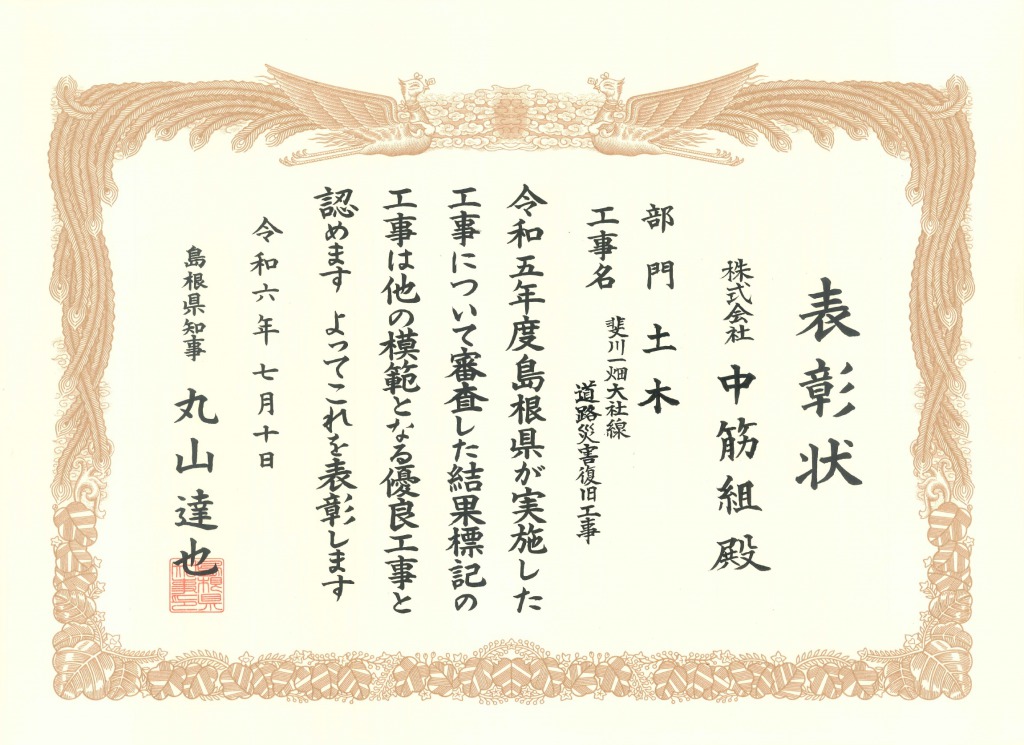 表彰状
株式会社 中筋組 殿
部門 土木
工事名 斐川一畑大社線
道路災害復旧工事
令和五年度島根県が実施した
工事について審査した結果標記の
工事は他の模範となる優良工事と
認めます よってこれを表彰します
令和六年七月十日
島根県知事 丸山達也